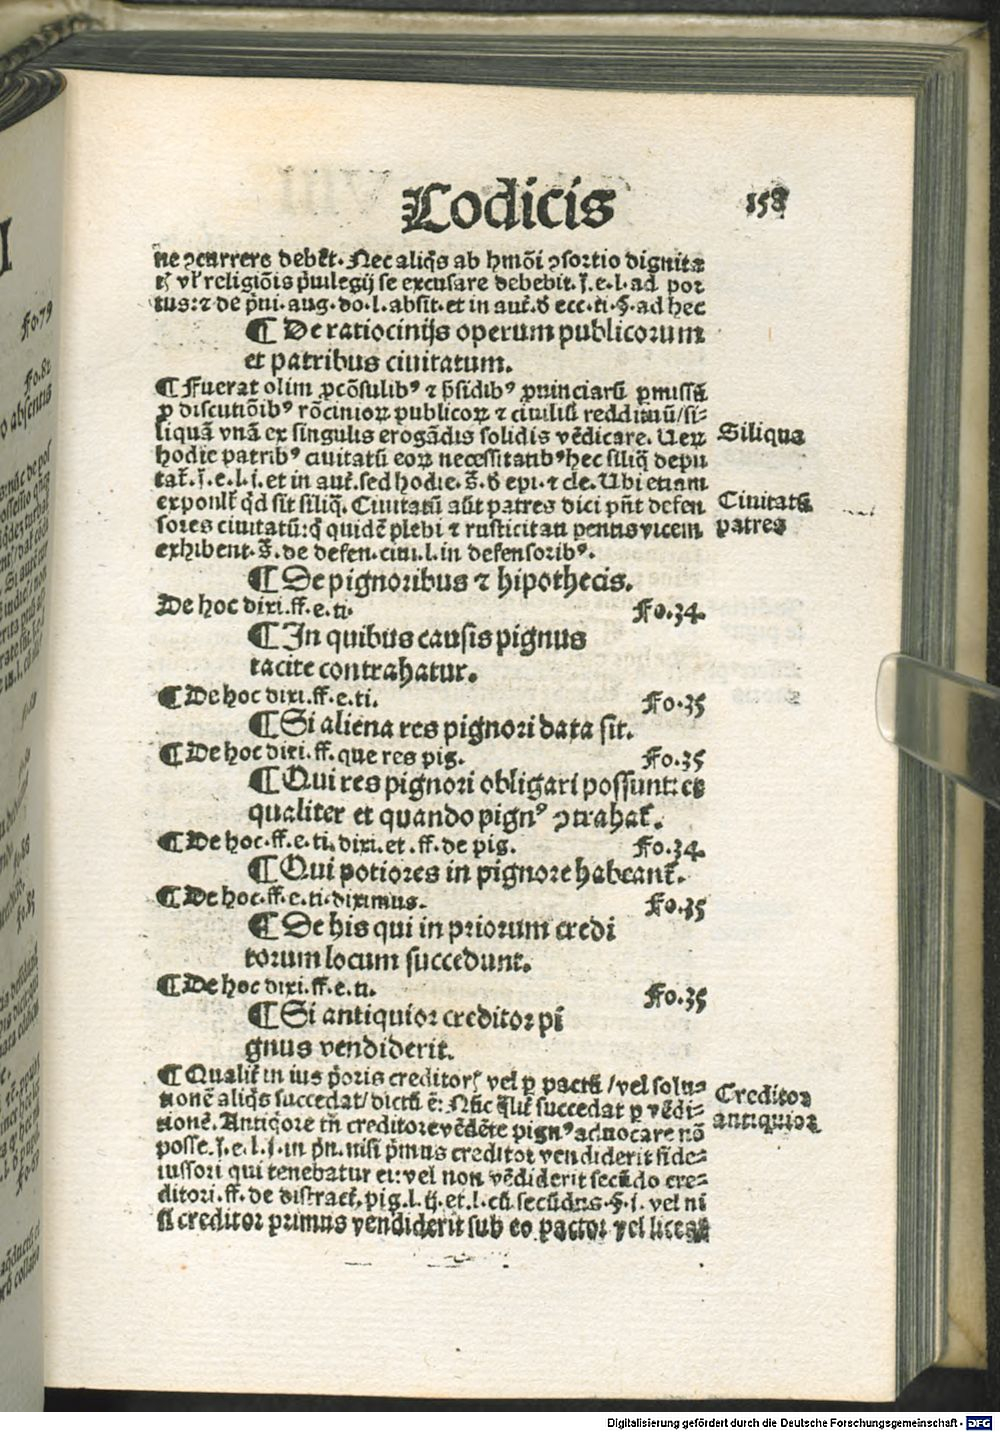 Codicis 158
ne ꝯcurrere debēt. Nec aliq̃s ab hmōi ꝯsortio dignita
tꝭ vl̓ religiōis p̓uilegij se excusare debebit. ĩ. e. l. ad por
tus: ⁊ de p̃ui. aug. do. l. absit. et in aut̃. ð ecc. ti. §. ad hec
¶ De ratiocinijs operum publicorum
et patribus ciuitatum.
¶ Fuerat olim ꝓcōsulib⁹ ⁊ p̃sidib⁹ ꝓuinciarũ ꝑmissũ
ꝓ discutiōib⁹ rōcinioꝝ publicoꝝ ⁊ ciuiliũ reddituũ/si⸗
liquã vnã ex singulis erogãdis solidis vẽdicare. Ueꝝ
hodie patrib⁹ ciuitatũ eoꝝ necessitatib⁹ hec siliq̃ depu
tat̃. ĩ. e. l. i. et in aut̃. sed hodie. s̃. ð epi. ⁊ cle. Ubi etiam
exponit̃ qd̃ sit siliq̃. Ciuitatũ aũt patres dici pñt defen
sores ciuitatũ: q̃ quidẽ plebi ⁊ rusticitati penitus vicem
exhibent. s̃. de defen. ciui. l. in defensorib⁹.
Siliqua
Ciuitatũ
patres
¶ De pignoribus ⁊ hipothecis.
De hoc dixi. ff. e. ti. Fo. 34.
¶ In quibus causis pignus
tacite contrahatur.
¶ De hoc dixi. ff. e. ti. Fo. 35
¶ Si aliena res pignori data sit.
¶ De hoc dixi. ff. que res pig. Fo. 35
¶ Qui res pignori obligari possunt: et
qualiter et quando pign⁹ ꝯtrahat̃.
¶ De hoc. ff. e. ti. dixi. et. ff. de pig. Fo. 34.
¶ Qui potiores in pignore habeant̃.
¶ De hoc. ff. e. ti. diximus. Fo. 35
¶ De his qui in priorum credi
torum locum succedunt.
¶ De hoc dixi. ff. e. ti. Fo. 35
¶ Si antiquior creditor pi
gnus vendiderit.
¶ Qualit̃ in ius p̓oris creditorꝭ vel ꝑ pactũ/vel solu⸗
tionẽ aliq̃s succedat/dictũ ẽ: Nũc q̃lit̃ succedat ꝑ vẽdi⸗
tionẽ. Antiq̓ore tñ creditore vẽdẽte pign⁹ aduocare nō
posse. ĩ. e. l. i. in p̃n. nisi p̓mus creditor vendiderit fide⸗
iussori qui tenebatur ei: vel non vẽdiderit secũdo cre⸗
ditori. ff. de distract̃. pig. l. ij. et. l. cũ secũdus. §. i. vel ni
si creditor primus vendiderit sub eo pacto: vel liceat
Creditor
antiquior
Fo. 79
Fo. 82
Digitalisierung gefördert durch die Deutsche Forschungsgemeinschaft - DFG